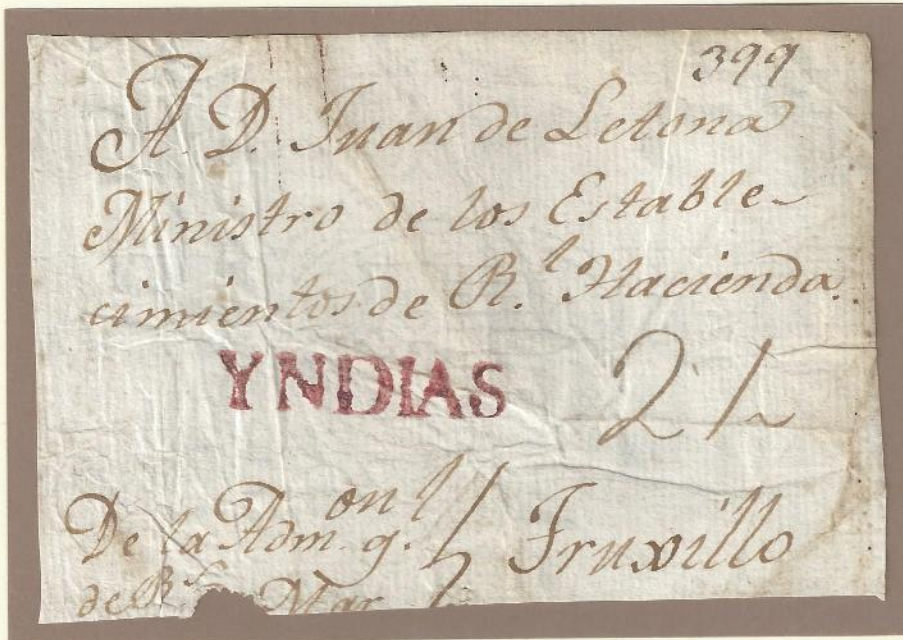 399
A D. Juan de Letona
Ministro de los Estable-
cimientos de R.l Hacienda.
YNDIAS 2
De la Adm.on g.l Truxillo
de R.s Mar